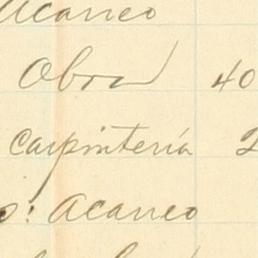 Acarreo
Obra 40
Carpintería 2
o: Acarreo